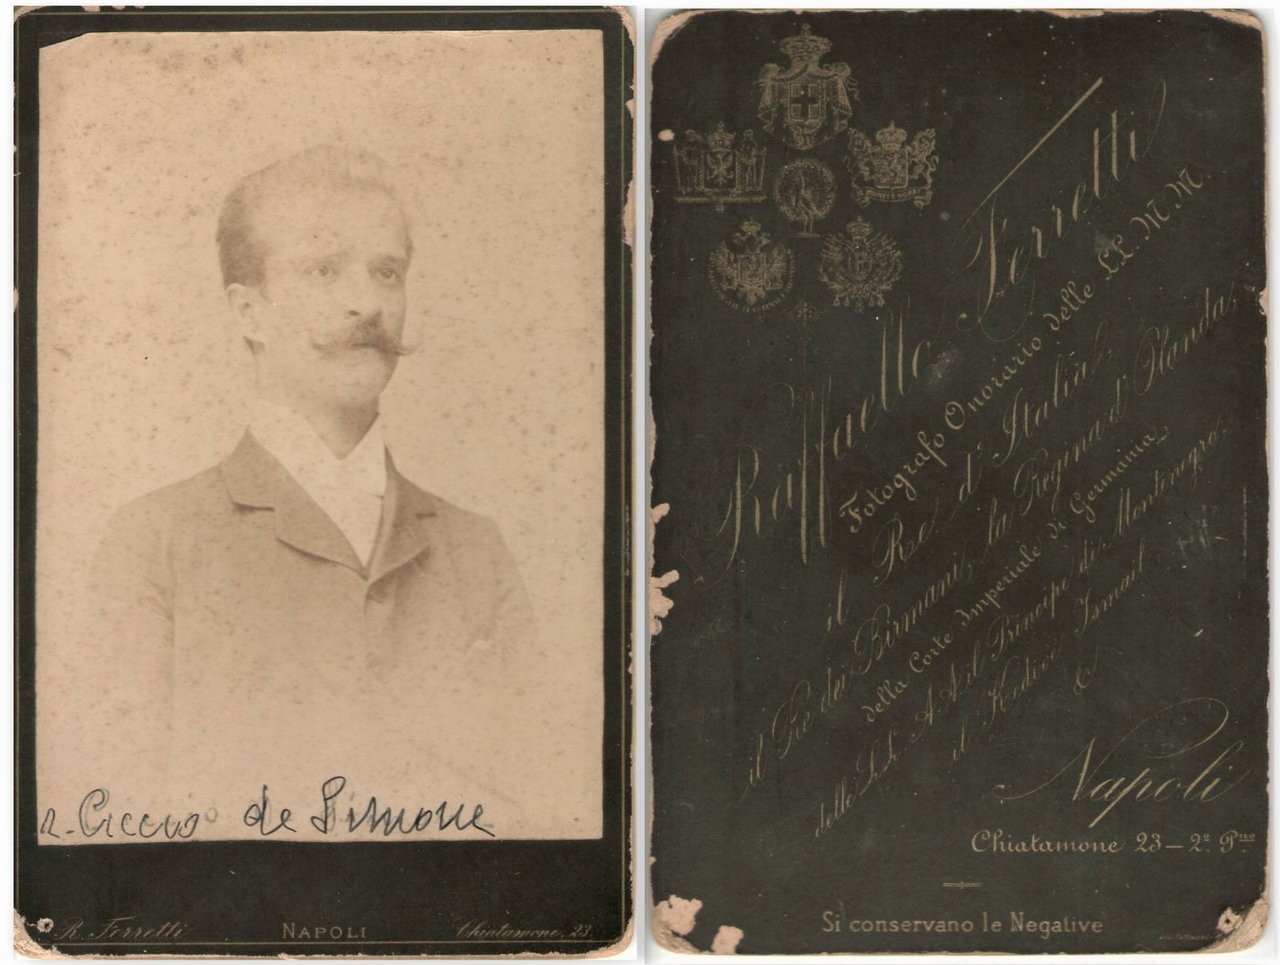 Ciccio de Simone
R. Ferretti NAPOLI Chiatamone, 23.
Raffaello Ferretti
Fotografo Onorario delle LL. M M.
il Re d'Italia,
il Re dei Birmani, la Regina d'Olanda,
della Corte Imperiale di Germania,
delle LL. A A. il Principe di Montenegro,
il Kedivè Ismail
&
Napoli
Chiatamone 23 — 2º. Pno
Si conservano le Negative